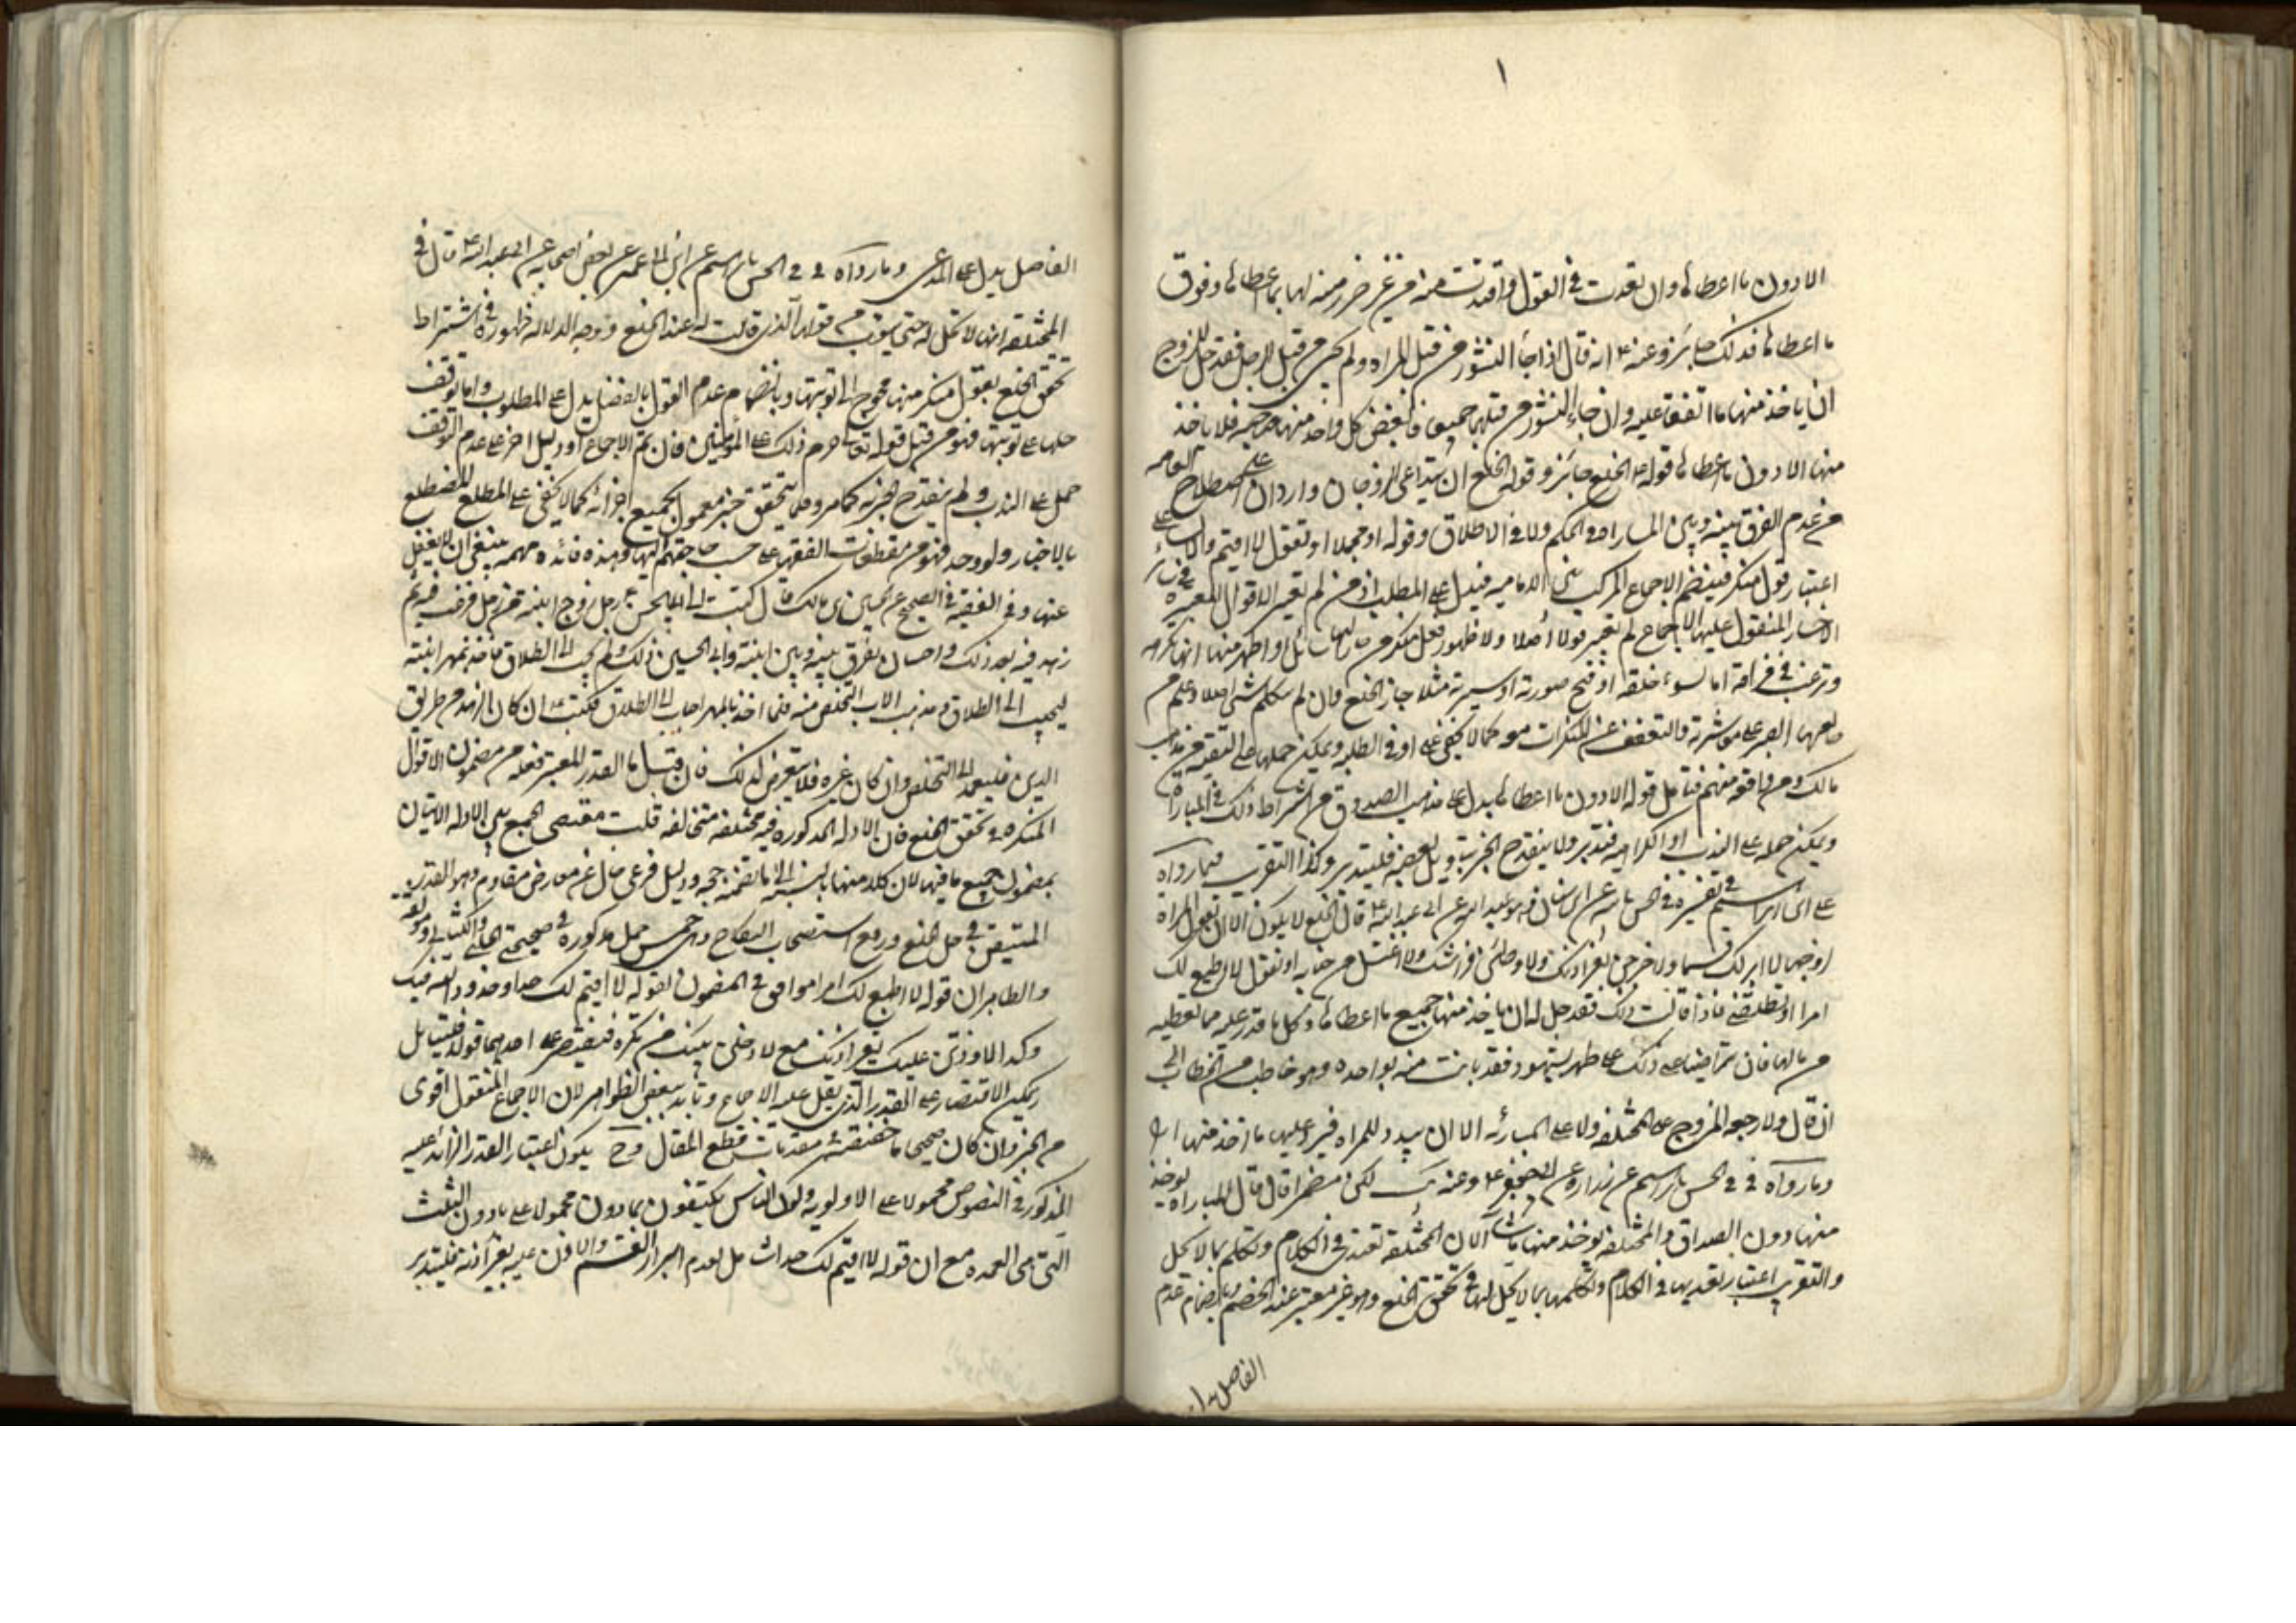 ١
الا دون ما اعطاها وان تعدت في القول وافتدت منه من غير ضرر منه لها بما اعطاها وفوق
ما اعطاها فذلك جايز وعنه ع انه قال اذا جاء النشوز من قبل المراه ولم يجئ من قبل الرجل فقد حل للزوج
ان ياخذ منها ما اتفقا عليه وان جاء النشوز من قبلهما جميعا فابغض كل واحد منهما صاحبه فلا ياخذ
منها الا دون ما اعطاها قوله ع الخلع جائز وقوله الخلع ان يتداعى الزوجان واردان على اصطلاح العامه
من عدم الفرق بينه وبين المباراه في الحكم ولا في الاطلاق وقوله او مجملا او تقول لا اقيم
اعتبار قول منكر فينضم الاجماع المركب بين الاماميه فيدل على المطلب اذ من لم يعتبر الاقوال المعتبره في
الاخبار المنقول عليها الاجماع لم يعتبر قولا اصلا ولا ظهور فعل منكر من او اظهر منها انها تكرهه
وترغب في فراقه اما لسوء خلقه او قبح صورته او سيرته مثلا جاز الخلع وان لم تتكلم بشئ اصلا وعلم من
الصبر على معاشرته والتعفف عن المنكرات كما لا يخفى على اوفى الطلبه ويمكن حملها على التقيه من مذاهب
مالك ومن وافقه منهم فتامل قوله الا دون ما اعطاها يدل على مذهب الصدوق من اشتراط ذلك في المباراه
ويمكن حمله على الندب او الكراهيه فتدبر ولا ينقدح الخبر بتاويل بعضه فليتدبر وكذا التقريب فيما رواه
على بن ابراهيم في تفسيره في الحسن بابراهيم عن ابن سنان عن ابي عبد الله ع قال الخلع لا يكون الا ان تقول المراه
لزوجها لا ابر لك قسما ولاخرجن بغير اذنك ولاوطئن فراشك ولا اغتسل من جنابه او تقول لا اطيع لك
امرا او تطلقني فاذا قالت ذلك فقد حل له ان ياخذ منها جميع ما اعطاها وكل ما قدر عليه مما تعطيه
من مالها فان تراضيا على ذلك على طهر بشهود فقد بانت منه بواحده وهو خاطب من الخطاب الى
ان قال ولا رجعه للزوج على المختلعه ولا على المبارئه الا ان يبدو للمراه فيرد عليها ما اخذ منها
وما رواه في في الحسن بابراهيم عن زراره عن ابي جعفر ع قال المباراه يوخذ
منها دون الصداق والمختلعه يوخذ منها ما شاء لان المختلعه تعتدي في الكلام وتكلم بما لا يحل
والتقريب اعتبار تعديها في الكلام وتكلمها بما لا يحل لها في تحقق الخلع وهو غير معتبر عند الخصم بانضمام عدم
الفاصل يدل
الفاصل يدل على المدعى وما رواه في في الحسن بابراهيم عن ابن ابي عمير عن بعض اصحابه عن ابي عبد الله ع قال في
المختلعه انها لا تحل له حتى يتوب من قولها الذي قالت له عند الخلع ووجه الدلاله ظهوره في اشتراط
تحقق الخلع بقول منكر منها محوج الى توبتها وبانضمام عدم القول بالفصل يدل على المطلوب واما توقف
حلها على توبتها فهو من قبيل قوله تعالى حرم ذلك على المؤمنين فان تم الاجماع او دليل اخر على عدم التوقف
حمل على الندب ولم ينقدح الخبر به كما مر وقلما يتحقق خبر معمول بجميع اجزائه كما لا يخفى على المطلع المضطلع
بالاخبار ولو وجد فهو من مقطوعات الفقهاء على حسب حاجتهم اليها وهذه فائده مهمه ينبغي ان لا يغفل
عنها وفي الفقيه في الصحيح عن الحسين بن مالك قال كتبت الى ابي الحسن ع رجل زوج ابنته من رجل فرغب فيه ثم
زهد فيه بعد ذلك واحب ان يفرق بينه وبين ابنته وابى الختن ذلك ولم يجب الى الطلاق فاخذه بمهر ابنته
ليجيب الى الطلاق ومذهب الاب التخلص منه فلما اخذ بالمهر اجاب الى الطلاق فكتب ع ان كان الزهد من طريق
الدين فليعمد الى التخلص وان كان غيره فلا يتعرض لذلك فان قيل ما القدر المعتبر فعله من مضمون الاقوال
المنكره في تحقق الخلع فان الادله المذكوره فيه مختلفه متخالفه قلت مقتضى الجمع بين الادله الاتيان
بمضمون جميع ما فيها لان كلا منها بالنسبه الى ما تضمنه حجه ودليل شرعي خال عن معارض مقاوم وهو القدر
المتيقن في حل الخلع ورفع استصحاب النكاح وهي خمس جمل مذكوره في صحيحة الحلبي
والظاهر ان قوله لا اطيع لك امرا موافق في المضمون لقوله لا اقيم لك حدا
وكذا لاوذنن عليك بغير اذنك مع لادخلن بيتك من تكره فيقتصر على احديهما قوله
يمكن الاقتصار على القدر الذي نقل عليه الاجماع وتايد ببعض الظواهر لان الاجماع المنقول اقوى
من الخبر وان كان صحيحا قطع المقال وح يكون اعتبار القدر الزائد عليه
المذكور في النصوص محمولا على الاولويه وكون الناس يكتفون بما دون محمولا على ما دون الثلث
التي هي العمده مع ان قوله لا اقيم لك حدا شامل لعدم ابرار القسم والاذن عليه بغير اذنه فليتدبر